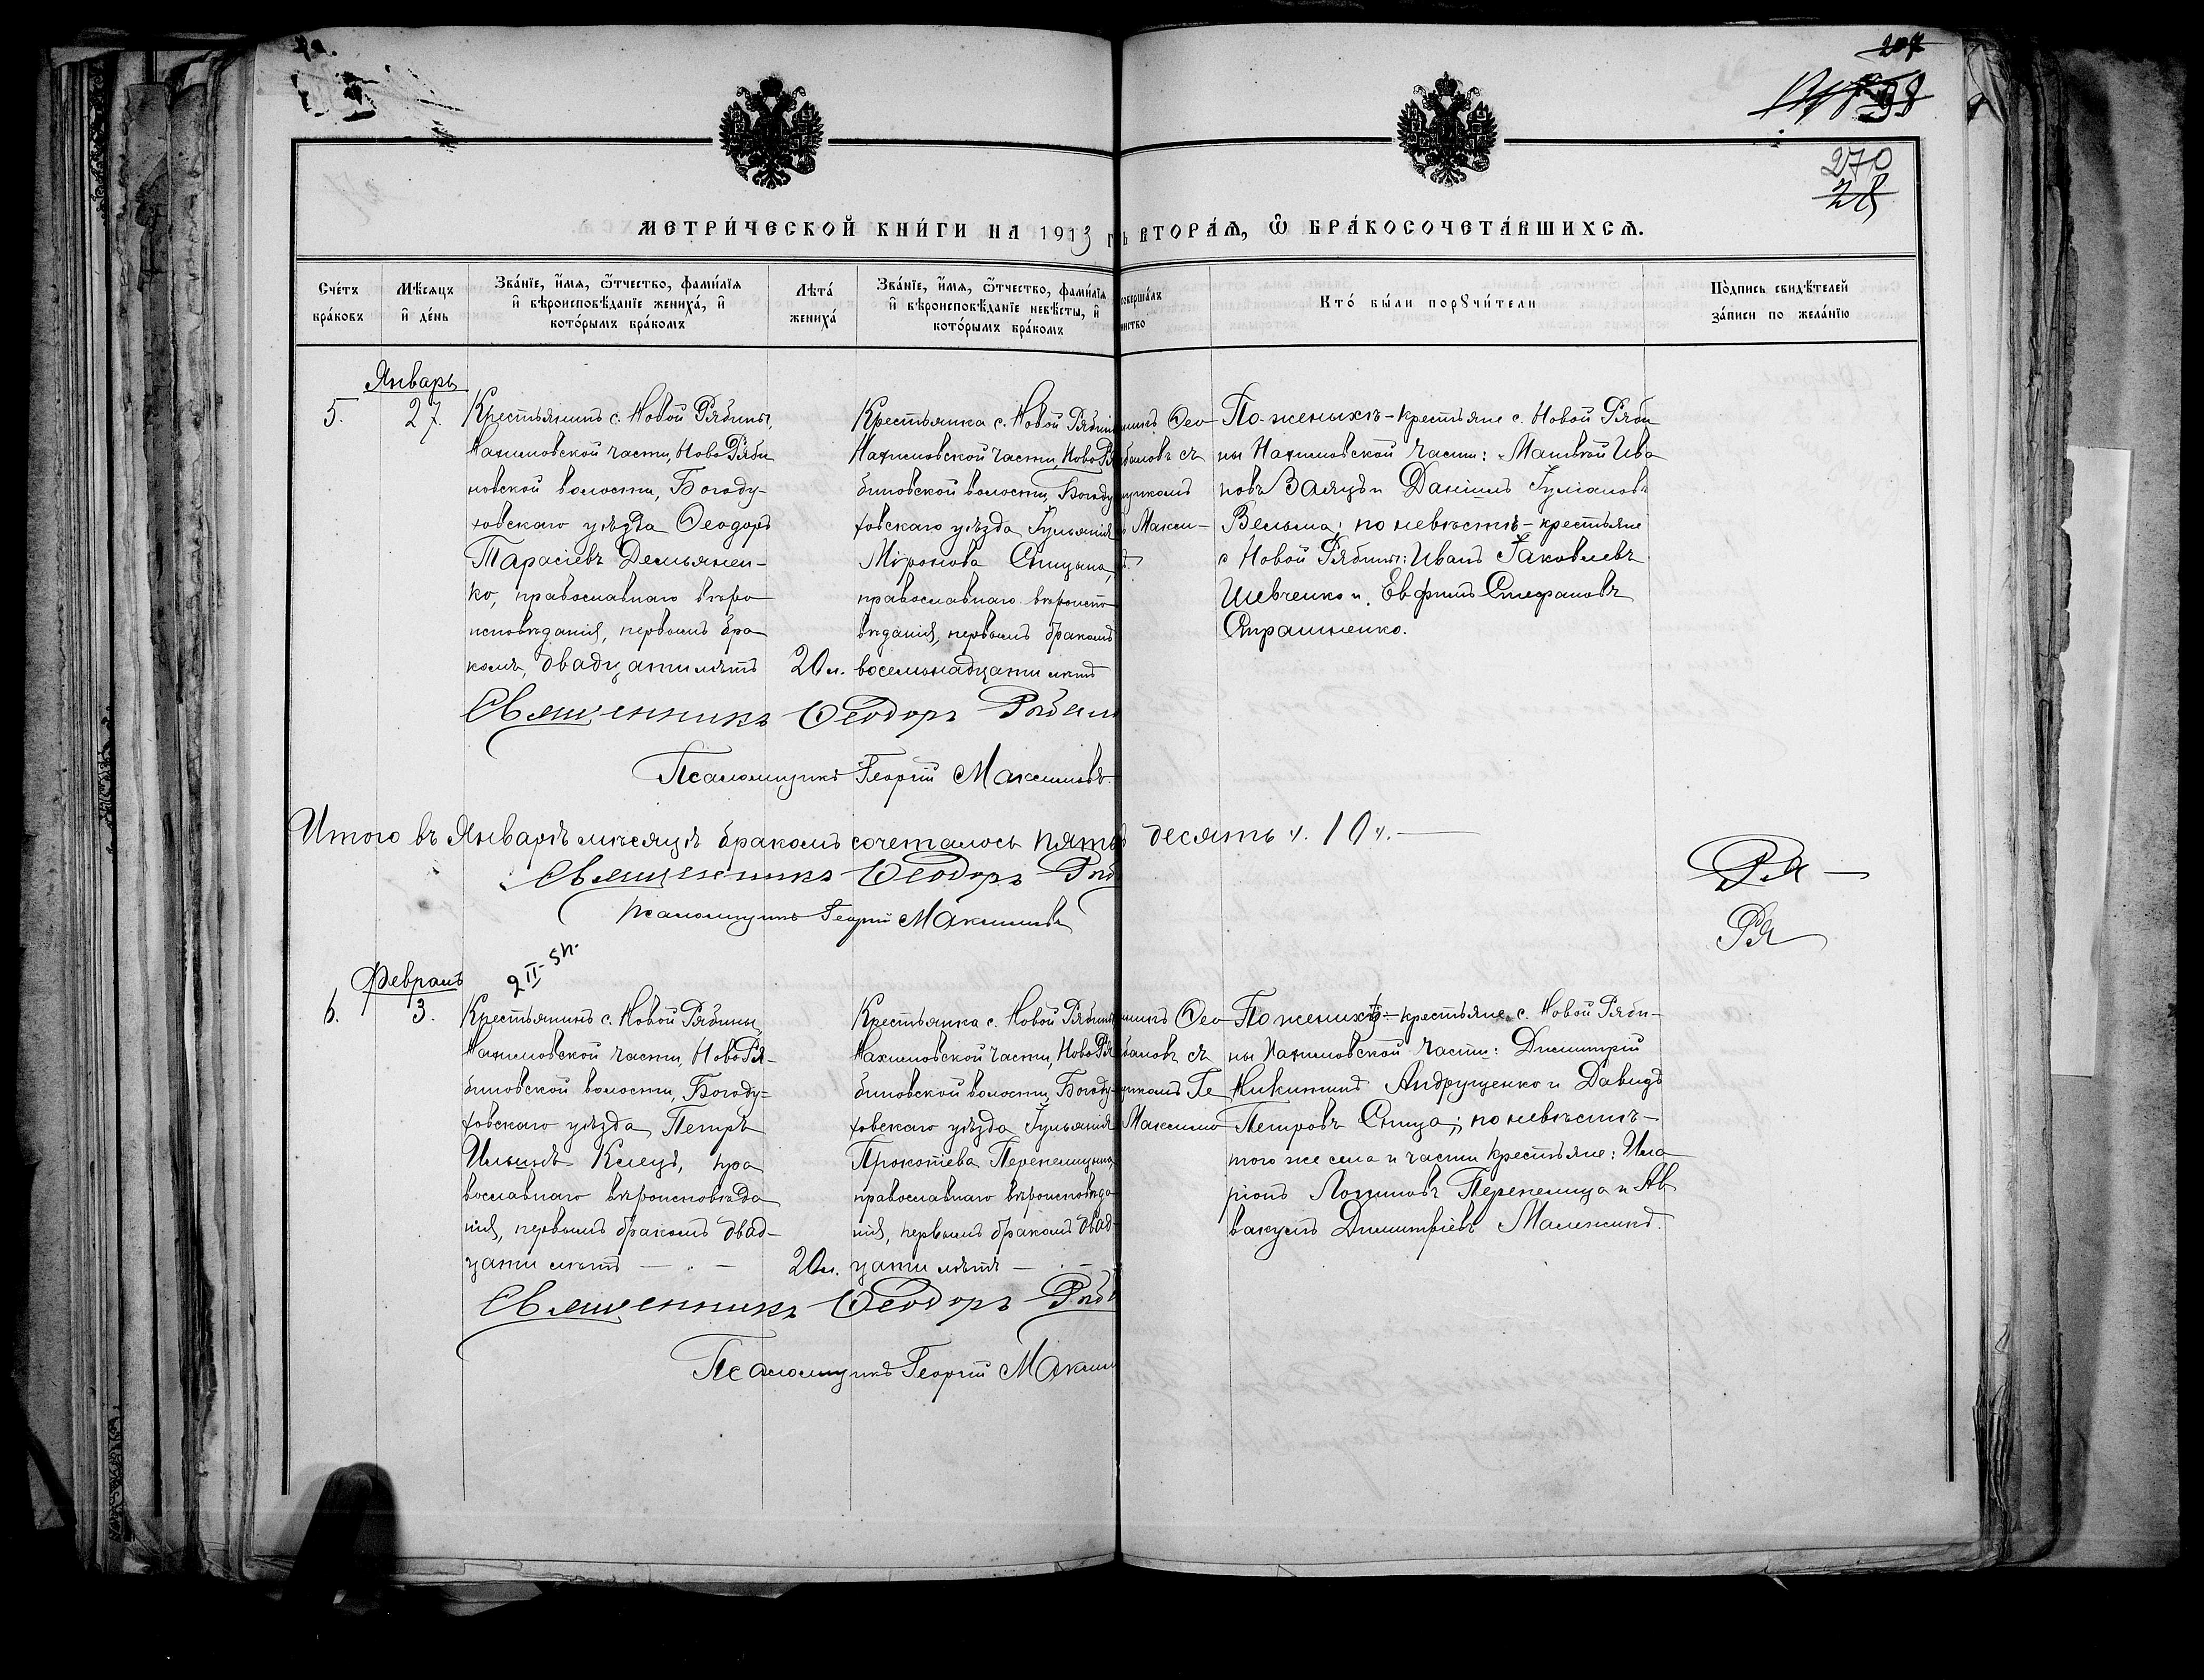 207
98
270
28
МЕТРИ́ЧЕСКОЙ КНИ́ГИ НА 1913 г
ВТОРА́Ѧ, Ѽ БРА́КОСОЧЕТА́ВШИХСѦ.
Сче́тъ бра́ковъ
Мѣ́сяцъ и҆ де́нь
Зва́нїе, и҆́мя, ѻ҆́тчество, фами́лїя
и҆ вѣроисповѣ́данїе жениха́, и҆
кото́рымъ бра́комъ
Лѣта́ жениха́
Зва́нїе, и҆́мя, ѻ҆́тчество, фами́лїя
и҆ вѣроисповѣ́данїе невѣ́сты, и҆
кото́рымъ бра́комъ
совершалъ
инство
Кто́ бы́ли порꙋчи́тели
По́дпись свидѣ́телей
за́писи по жела́нїю
Январь
5.
27.
Крестьянинъ с. Новой Рябины,
Нахимовской части, НовоРяби
новской волости, Богоду-
ховскаго уѣзда Ѳеодоръ
Тарасіевъ Демьянен-
ко, православнаго вѣро
исповѣданія, первымъ бра
комъ, двадцати лѣтъ
20 л.
Крестьянка с. Новой Рябин
Нахимовской части, НовоРя
биновской волости, Богоду
ховскаго уѣзда Іуліанія
Миронова Спицына,
православнаго вѣроиспо
вѣданія, первымъ бракомъ
восемьнадцати лѣтъ
никъ Ѳео
баловъ съ
щикомъ
Макси-
По женихѣ - крестьяне с. Новой Ряби
ны Нахимовской части: Матвѣй Ива
новъ Заяцъ и Даніилъ Іуліановъ
Весьма; по невѣстѣ - крестьяне
с Новой Рябины: Иванъ Іаковлевъ
Шевченко и Евфимъ Стефановъ
Опрашненко.
Священникъ Ѳеодоръ
Псаломщикъ Георгій Максимовъ.
Итого въ Январѣ мѣсяцѣ бракомъ сочеталось пять
десять ч. 10 ч.
Священникъ Ѳеодоръ
Псаломщикъ Георгій Максимовъ
Февраль
2 II- 5 ч.
6.
3.
Крестьянинъ с. Новой Рябины,
Нахимовской части, НовоРя-
биновской волости, Богоду-
ховскаго уѣзда, Петръ
Ильинъ Клецъ, пра
вославнаго вѣроисповѣда
нія, первымъ бракомъ двад-
цати лѣтъ
20 л.
Крестьянка с. Новой Рябин
Нахимовской части, НовоРя
биновской волости, Богоду-
ховскаго уѣзда Іуліанія
Прокопіева Перепелицына,
православнаго вѣроисповѣда
нія, первымъ бракомъ двад-
цати лѣтъ
никъ Ѳео
баловъ съ
щикомъ Ге
Максимо
По женихѣ - крестьяне с. Новой Ряби-
ны Нахимовской части: Димитрій
Никитинъ Андрущенко и Давидъ
Петровъ Спица; по невѣстѣ -
того же села и части крестьяне: Ила
ріонъ Логиновъ Перепелица и Ав
вакумъ Димитріевъ Малежикъ.
Священникъ Ѳеодоръ
Псаломщикъ Георгій Максим